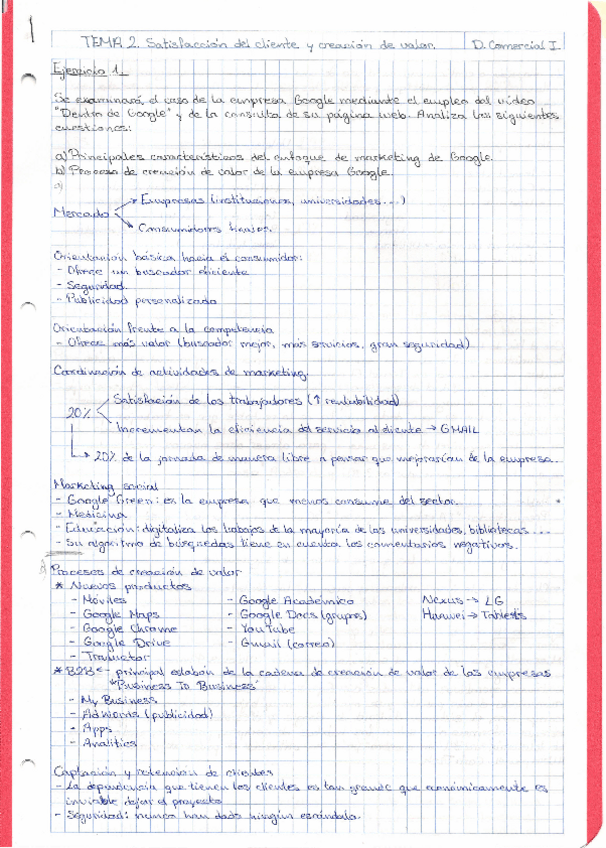 TEMA 2. Satisfacción del cliente y creación de valor. D. Comercial I.
Ejercicio 1.
Se examinará el caso de la empresa Google mediante el empleo del vídeo
"Dentro de Google" y de la consulta de su página web. Analiza las siguientes
cuestiones:
a) Principales características del enfoque de marketing de Google.
b) Proceso de creación de valor de la empresa Google.
a)
Empresas (instituciones, universidades...)
Mercado
Consumidores finales.
Orientación básica hacia el consumidor:
- Ofrece un buscador eficiente
- Seguridad.
- Publicidad personalizada
Orientación frente a la competencia
- Ofrece más valor (buscador mejor, más servicios, gran seguridad)
Coordinación de actividades de marketing.
Satisfacción de los trabajadores (↑ rentabilidad)
20%
Incrementan la eficiencia del servicio al cliente → GMAIL
→ 20% de la jornada de manera libre a pensar que mejorarían de la empresa...
Marketing social
- Google Green: es la empresa que menos consume del sector.
- Medicina
- Educación: digitaliza los trabajos de la mayoría de las universidades, bibliotecas...
- Su algoritmo de búsquedas tiene en cuenta los comentarios negativos.
Procesos de creación de valor
* Nuevos productos
- Móviles - Google Académico Nexus → LG
- Google Maps - Google Docs (grupos) Huawei → Tablets
- Google Chrome - YouTube
- Google Drive - Gmail (correo)
- Traductor
* B2B ← principal eslabón de la cadena de creación de valor de las empresas
"Business To Business"
- My Business
- AdWords (publicidad)
- Apps
- Analitics
Captación y retención de clientes
- La dependencia que tienen los clientes es tan grande que económicamente es
inviable dejar el proyecto
- Seguridad: nunca han dado ningún escándalo.